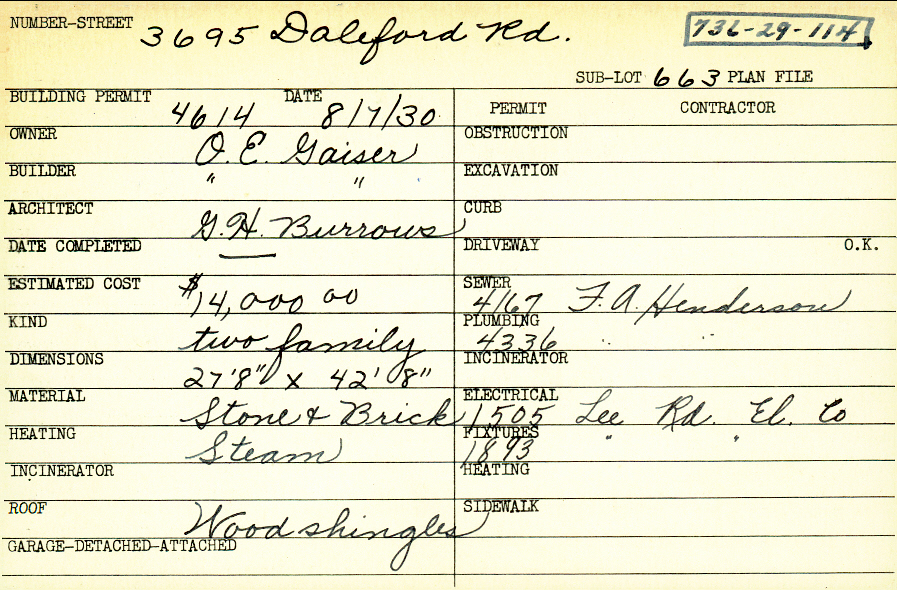 NUMBER-STREET 3695 Daleford Rd. 736-29-114
SUB-LOT 663 PLAN FILE
BUILDING PERMIT 4614 DATE 8/7/30
PERMIT CONTRACTOR
OWNER O. E. Gaiser
OBSTRUCTION
BUILDER " "
EXCAVATION
ARCHITECT G. H. Burrows
CURB
DATE COMPLETED
DRIVEWAY O.K.
ESTIMATED COST $14,000 00
SEWER 4167 F. A. Henderson
KIND two family
PLUMBING 4336 " "
DIMENSIONS 27'8" x 42' 8"
INCINERATOR
MATERIAL Stone & Brick
ELECTRICAL 1505 Lee Rd. El. Co
HEATING Steam
FIXTURES 1893 " "
INCINERATOR
HEATING
ROOF Wood shingles
SIDEWALK
GARAGE-DETACHED-ATTACHED